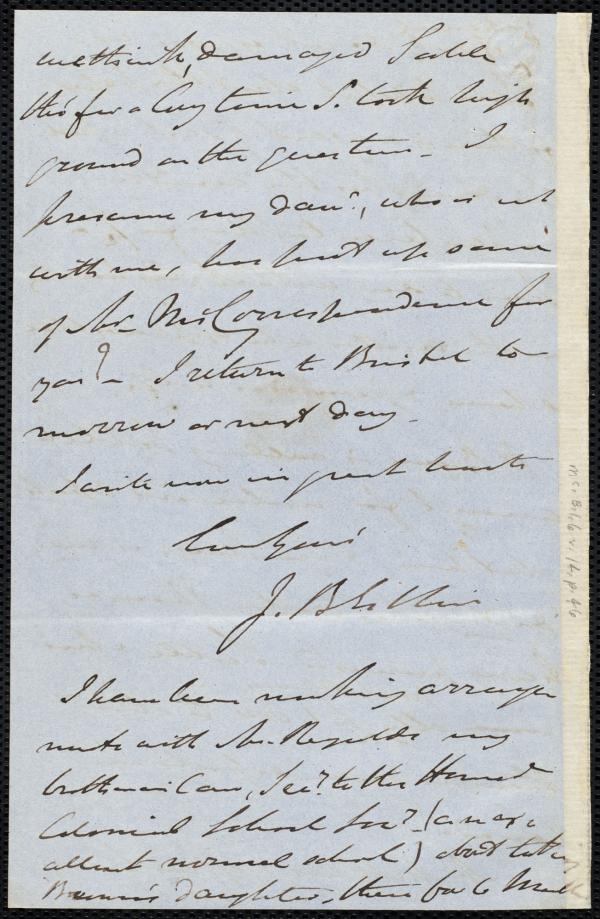 methink, damaged S
tho' for a long time S. took high
ground on the question – I
presume my dau.r, who is not
with me, has sent up some
of Mr. Mc.Correspondence for
you? – I return to Bristol to
morrow or next day –
I write now in great haste
Ever Yours
J. B Estlin
I have been making arrange
ments with Mr. Reynolds my
brother in law, Sec.y to the Home &
Colonial School Soc.y (an ex
cellent normal school) about taking
Brown's daughters, there for 6 M
M.S. B.1.6 v. 16, p. 46